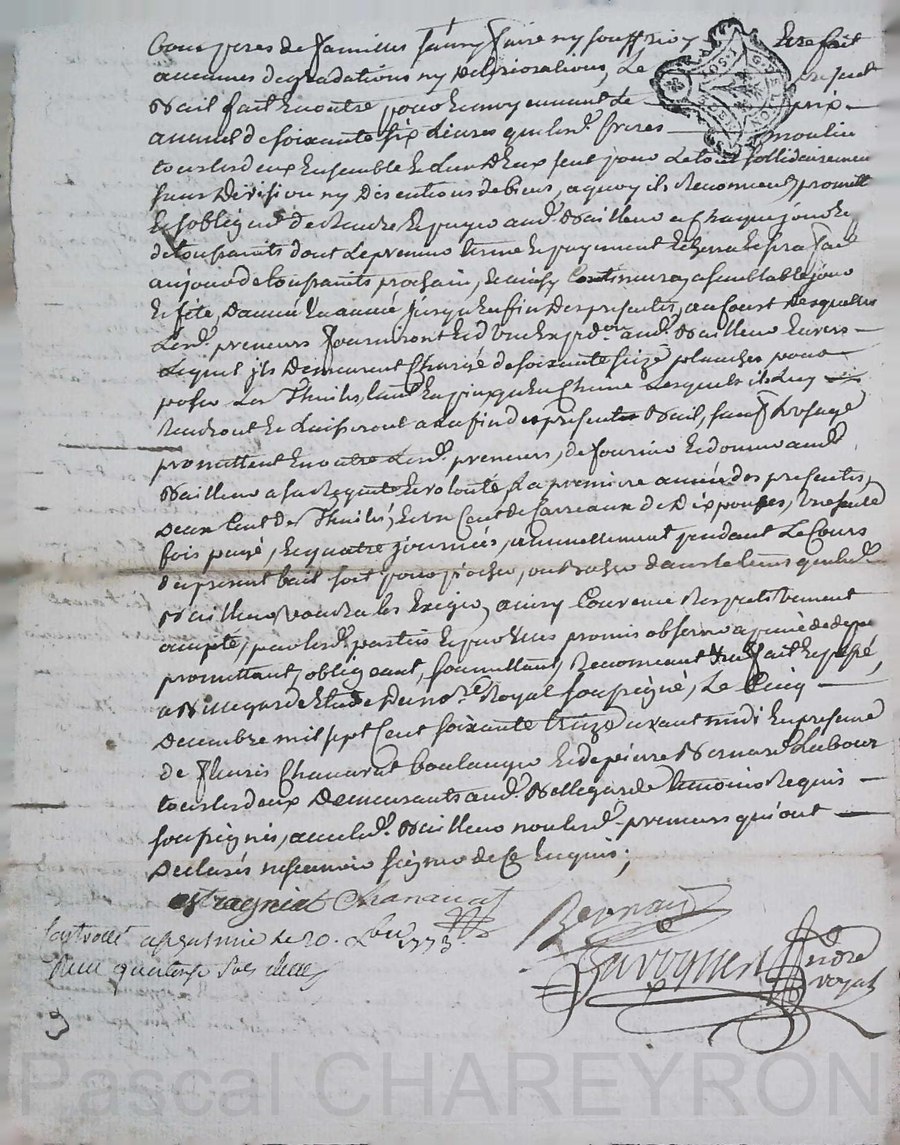 bons peres de familles sans y faire ny souffrir y etre fait
aucunes degradations ny deteriorations, Le present
Bail fait en outre pour et moyennant Le prix
annuel de soixante six Livres que les d. freres moulin
tous les deux Ensemble et L'un d'Eux seul pour Le tout sollidairement
sans Division ny Discutions de biens, a quoy ils Renoncent, promettent
et s'obligent de Rendre et payer aud. Bailleur a chaque jour de
de toussaints dont Le premier terme et payement Echerra et sera fait
au jour de toussaints prochain, et ainsy Continuera a semblable jour
et fête, D'année En année jusqu'en fin Des presentes, au Court desquelles
Les d. preneurs fourniront aud. Bailleur Envers
Lequel ils Demeurent Chargé de soixante seize planches pour
poser Les Thuiles, tant En pin qu'en Chene Lesquels ils Luy
Rendront et Laisseront a la fin des presents Bail, sauf L'usage
promettent En outre Les d. preneurs, de fournir et donner aud.
Bailleur a sa Requete et volonté La premiere année des presentes,
Deux Cent de Thuile, et un Cent de Carreaux de Dix pouces, une seule
fois payé, et quatre journées, annuellement pendant Le Cours
du present bail soit pour piocher, ou dans le tems que led.
Bailleur voudra les Exiger, ainsy Convenu Respectivement
accepté, par les d. parties et par Elles promis observer a peine de depens
promettant, obligeant, soumettant, Renonceant &c fait et passé,
a Bellegarde Etude Du no.re Royal soussigné, Le Cinq
Decembre mil sept Cent soixante treize avant midi En presence
de Chanavat boulanger et de pierre Bernard Laboureur
tous les deux Demeurants aud. Bellegarde temoins Requis
soussignés, avec led. Bailleur non les d. preneurs qui ont
Declarés ne scavoir signer de Ce Enquis;
estragniat Chanavat
Bernard
1773.
quatorze sols
no.re royal
Pascal CHAREYRON